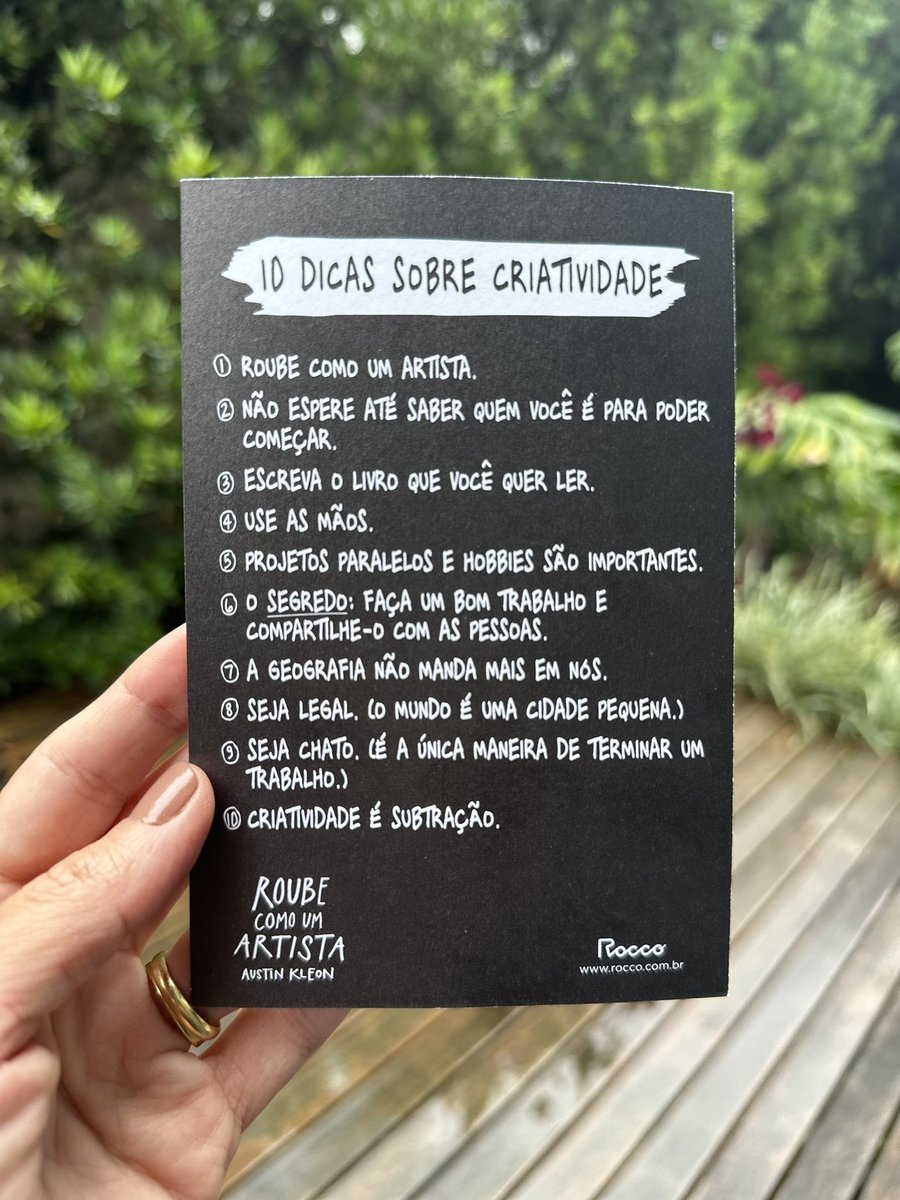 10 DICAS SOBRE CRIATIVIDADE
1 ROUBE COMO UM ARTISTA.
2 NÃO ESPERE ATÉ SABER QUEM VOCÊ É PARA PODER
COMEÇAR.
3 ESCREVA O LIVRO QUE VOCÊ QUER LER.
4 USE AS MÃOS.
5 PROJETOS PARALELOS E HOBBIES SÃO IMPORTANTES.
6 O SEGREDO: FAÇA UM BOM TRABALHO E
COMPARTILHE-O COM AS PESSOAS.
7 A GEOGRAFIA NÃO MANDA MAIS EM NÓS.
8 SEJA LEGAL. (O MUNDO É UMA CIDADE PEQUENA.)
9 SEJA CHATO. (É A ÚNICA MANEIRA DE TERMINAR UM
TRABALHO.)
10 CRIATIVIDADE É SUBTRAÇÃO.
ROUBE
COMO UM
ARTISTA
AUSTIN KLEON
Rocco
www.rocco.com.br